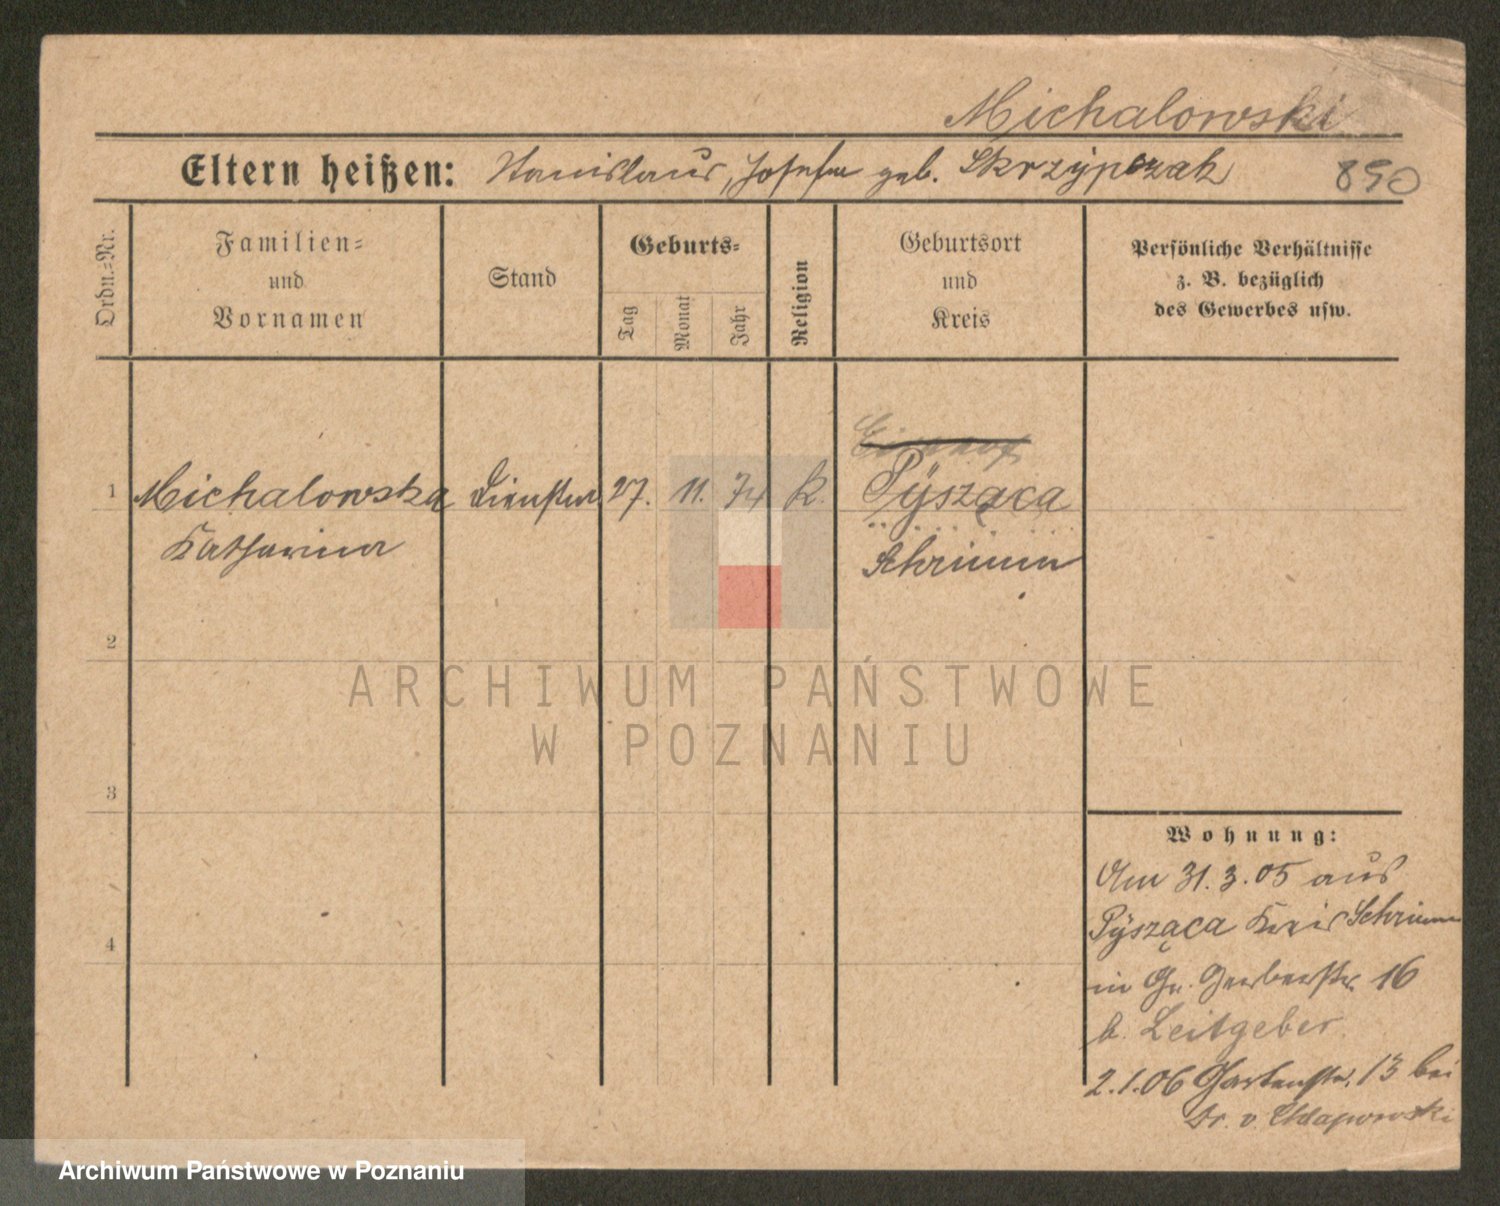 Michalowski
Eltern heißen: Stanislaus, Josefa geb. Skrzypczak
850
Ordn.=Nr.
Familien=
und
Vornamen
Stand
Geburts=
Tag
Monat
Jahr
Religion
Geburtsort
und
Kreis
Persönliche Verhältnisse
z. B. bezüglich
des Gewerbes usw.
1 Michalowska 27. 11. 74 k. Pÿsząca
Katharina Schrimm
2
ARCHIWUM PAŃSTWOWE
W POZNANIU
3
Wohnung:
Am 31.3.05 aus
4
Pÿsząca Kreis Schrimm
in Gr. Gerberstr. 16
b. Leitgeber.
2.1.06 Gartenstr. 13 bei
Dr. v. Chlapowski
Archiwum Państwowe w Poznaniu